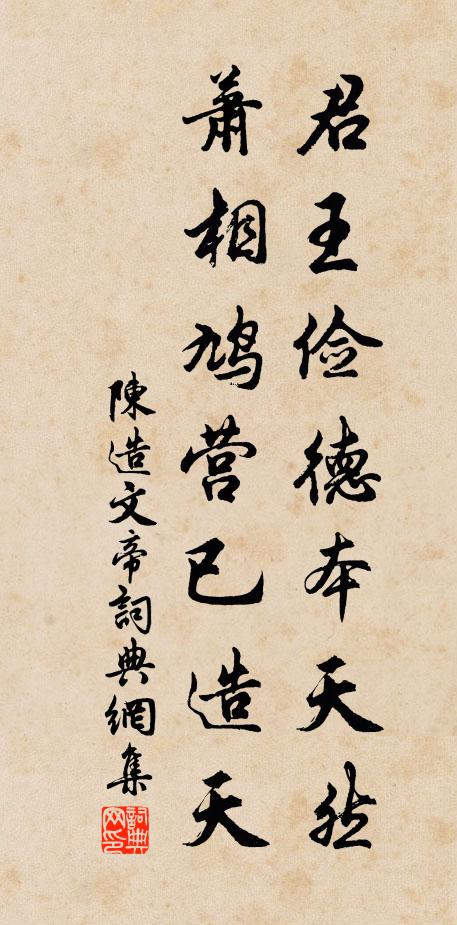 君王俭德本天然
萧相鸠营已造天
陳造文帝詞典網集
詞典
网印